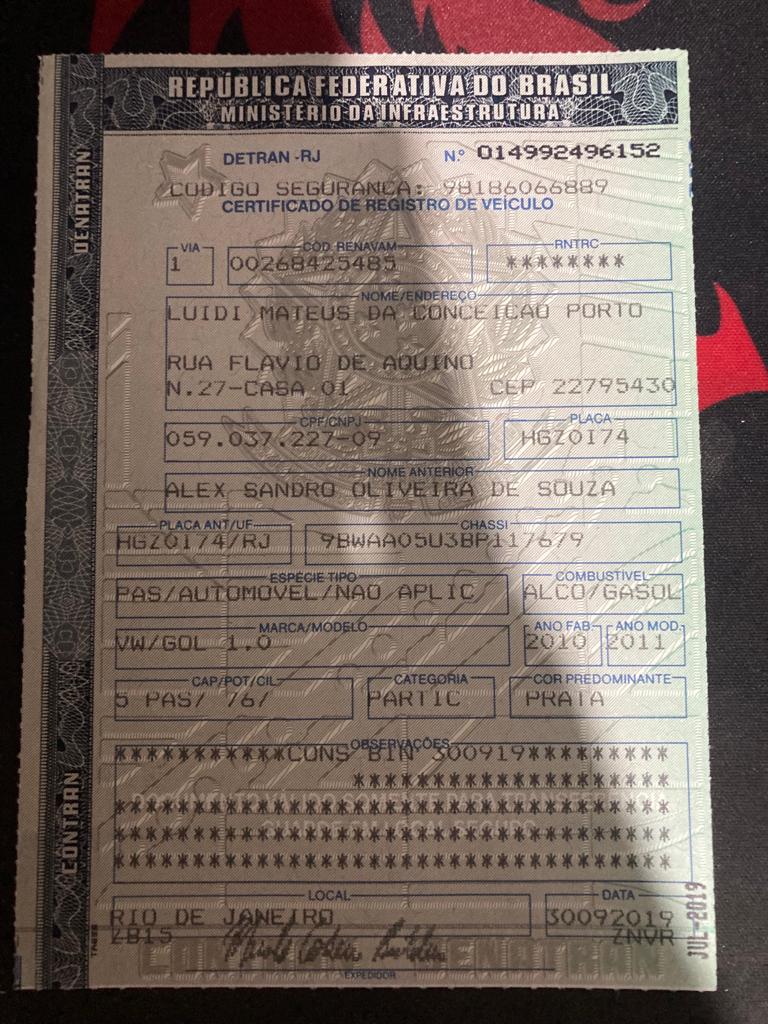 REPÚBLICA FEDERATIVA DO BRASIL
MINISTÉRIO DA INFRAESTRUTURA
DENATRAN
DETRAN -RJ Nº 014992496152
CODIGO SEGURANCA: 98186066889
CERTIFICADO DE REGISTRO DE VEÍCULO
VIA CÓD. RENAVAM RNTRC
1 00268425485 ********
NOME/ENDEREÇO
LUIDI MATEUS DA CONCEICAO PORTO
RUA FLAVIO DE AQUINO
N.27-CASA 01 CEP 22795430
CPF/CNPJ PLACA
059.037.227-09 HGZ0174
NOME ANTERIOR
ALEX SANDRO OLIVEIRA DE SOUZA
PLACA ANT/UF CHASSI
HGZ0174/RJ 9BWAA05U3BP117679
ESPÉCIE TIPO COMBUSTÍVEL
PAS/AUTOMOVEL/NAO APLIC ALCO/GASOL
MARCA/MODELO ANO FAB. ANO MOD.
VW/GOL 1.0 2010 2011
CAP/POT/CIL CATEGORIA COR PREDOMINANTE
5 PAS/ 76/ PARTIC PRATA
OBSERVAÇÕES
**********CONS BIN 300919*********
CONTRAN
LOCAL DATA
RIO DE JANEIRO 30092019
ZB15 ZNVR
EXPEDIDOR
JUL-2019